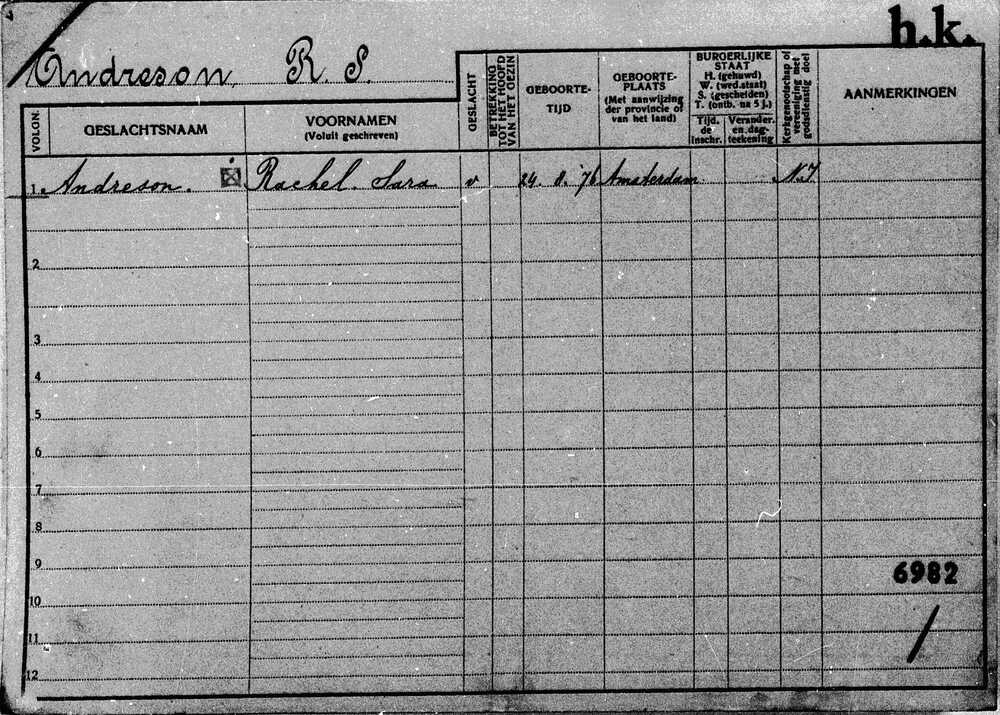 h.k.
Andreson, R. S.
VOLGN.
GESLACHTSNAAM
VOORNAMEN
(Voluit geschreven)
GESLACHT
BETREKKING
TOT HET HOOFD
VAN HET GEZIN
GEBOORTE-
TIJD
GEBOORTE-
PLAATS
(Met aanwijzing
der provincie of
van het land)
BURGERLIJKE
STAAT
H. (gehuwd)
W. (wed.staat)
S. (gescheiden)
T. (ontb. na 5 j.)
Tijd.
de
inschr.
Verander.
en dag-
teekening
Kerkgenootschap of
vereeniging met
godsdienstig doel
AANMERKINGEN
1. Andreson. Rachel Sara v 24. 8. '76 Amsterdam N.I
2
3
4
5
6
7
8
9
6982
10
11
12